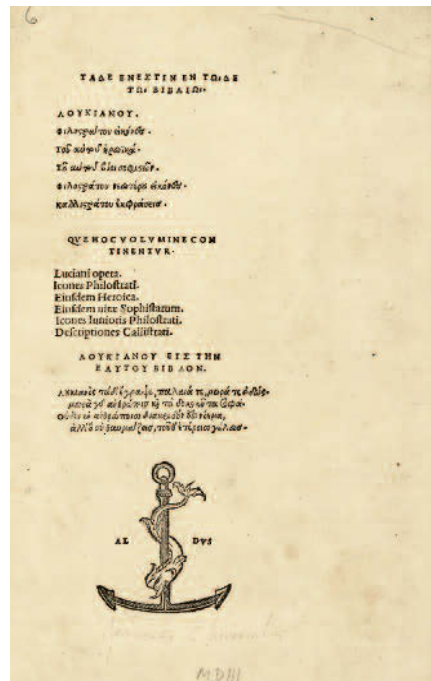 6
ΤΑΔΕ ΕΝΕΣΤΙΝ ΕΝ ΤΩΙΔΕ
ΤΩΙ ΒΙΒΛΙΩΙ·
ΛΟΥΚΙΑΝΟΥ.
Φιλοστράτου εἰκόνες.
Τοῦ αὐτοῦ ἡρωικά.
Τοῦ αὐτοῦ βίοι σοφιστῶν.
Φιλοστράτου νεωτέρου εἰκόνες.
Καλλιστράτου ἐκφράσεις.
QVAE HOC VOLVMINE CON
TINENTVR.
Luciani opera.
Icones Philostrati.
Eiusdem Heroica.
Eiusdem uitæ Sophistarum.
Icones Iunioris Philostrati.
Descriptiones Callistrati.
ΛΟΥΚΙΑΝΟΥ ΕΙΣ ΤΗΝ
ΕΑΥΤΟΥ ΒΙΒΛΟΝ.
Λουκιανὸς τάδ' ἔγραψε, παλαιά τε, μωρά τε εἰδώς·
μωρὰ γὰρ ἀνθρώποις καὶ τὰ δοκοῦντα σοφά·
Οὐδὲν ἐν ἀνθρώποισι διακριδόν ἐστι νόημα,
ἀλλ' ὃ σὺ θαυμάζεις, τοῦθ' ἑτέροισι γέλως·
AL DVS
MDIII